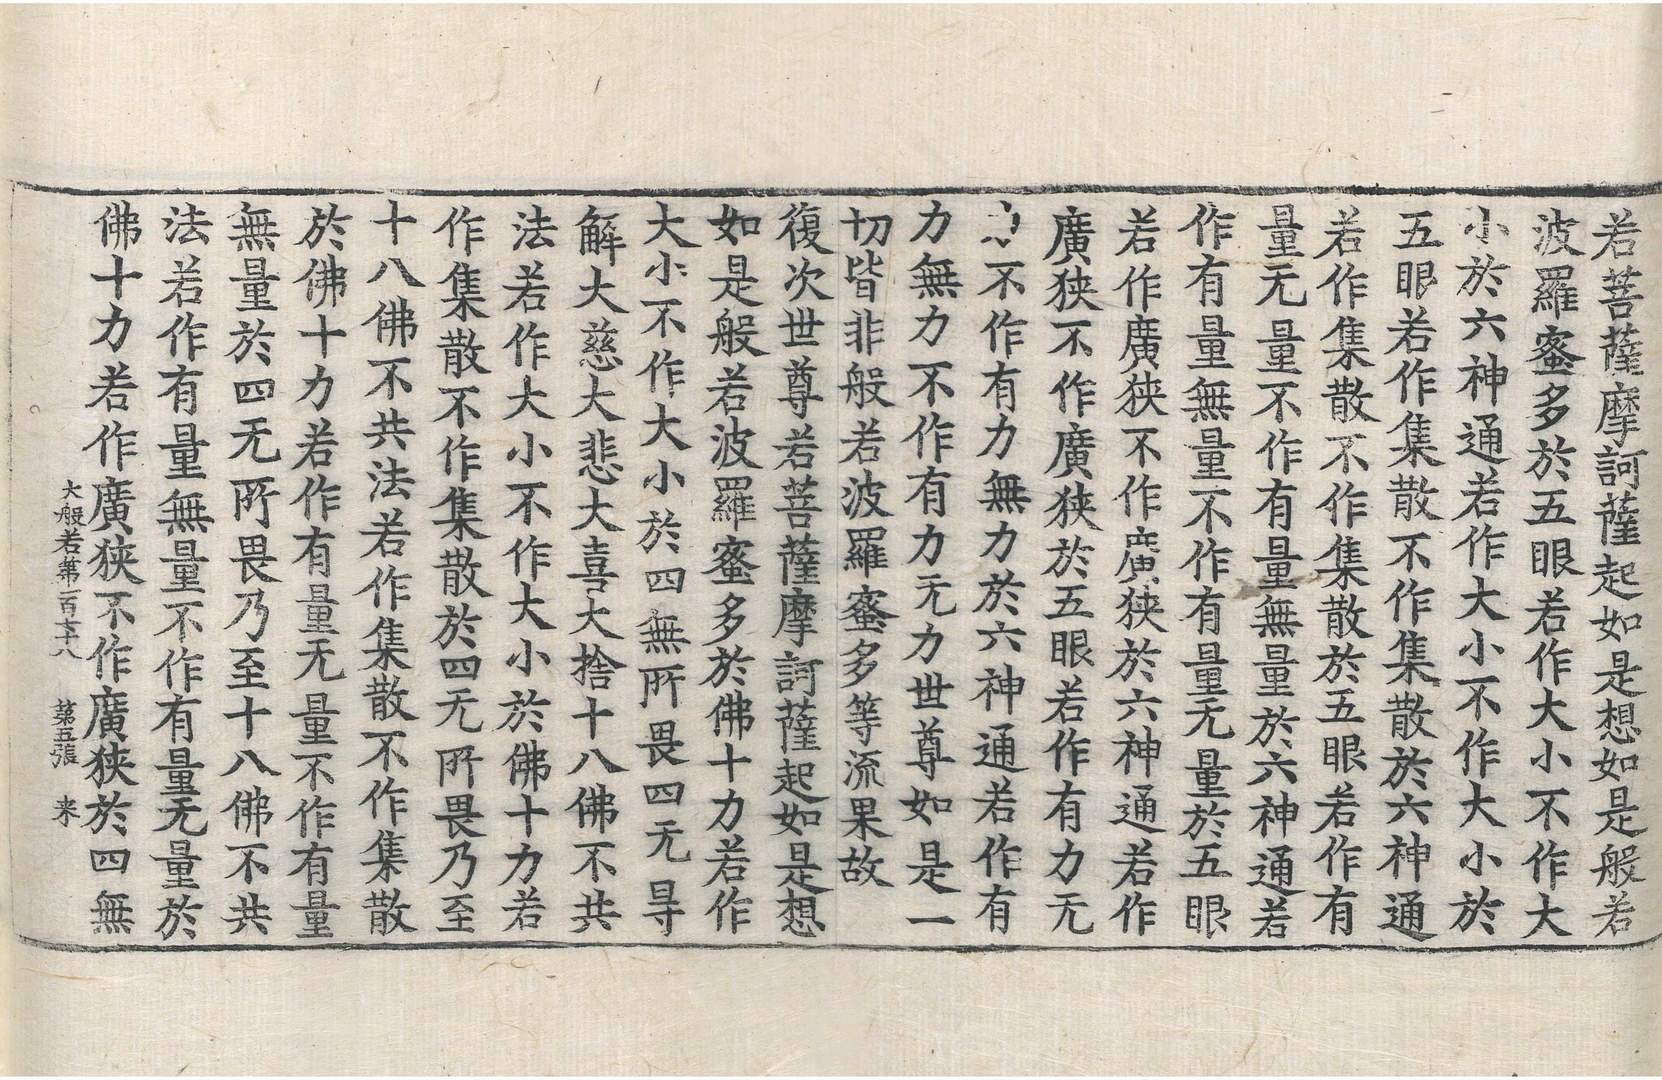 若菩薩摩訶薩起如是想如是般若
波羅蜜多於五眼若作大小不作大
小於六神通若作大小不作大小於
五眼若作集散不作集散於六神通
若作集散不作集散於五眼若作有
量无量不作有量無量於六神通若
作有量無量不作有量无量於五眼
若作廣狹不作廣狹於六神通若作
廣狹不作廣狹於五眼若作有力无
不作有力無力於六神通若作有
力無力不作有力无力世尊如是一
切皆非般若波羅蜜多等流果故
復次世尊若菩薩摩訶薩起如是想
如是般若波羅蜜多於佛十力若作
大小不作大小於四無所畏四无㝵
解大慈大悲大喜大捨十八佛不共
法若作大小不作大小於佛十力若
作集散不作集散於四无所畏乃至
十八佛不共法若作集散不作集散
於佛十力若作有量无量不作有量
無量於四无所畏乃至十八佛不共
法若作有量無量不作有量无量於
佛十力若作廣狹不作廣狹於四無
大般若第一百七十八 第五張 来